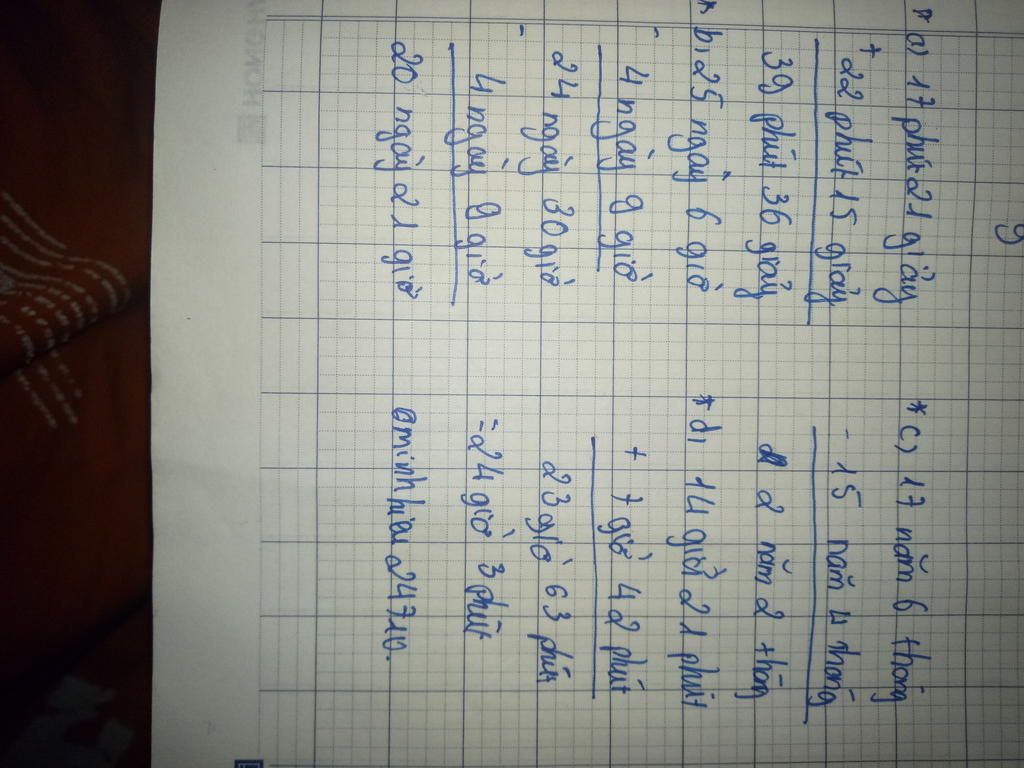 9
* a) 17 phút 21 giây
+ 22 phút 15 giây
39 phút 36 giây
* b) 25 ngày 6 giờ
- 4 ngày 9 giờ
24 ngày 30 giờ
- 4 ngày 9 giờ
20 ngày 21 giờ
* c) 17 năm 6 tháng
- 15 năm 4 tháng
2 năm 2 tháng
* d) 14 giờ 21 phút
+ 7 giờ 42 phút
23 giờ 63 phút
= 24 giờ 3 phút
aminhhieu24710.